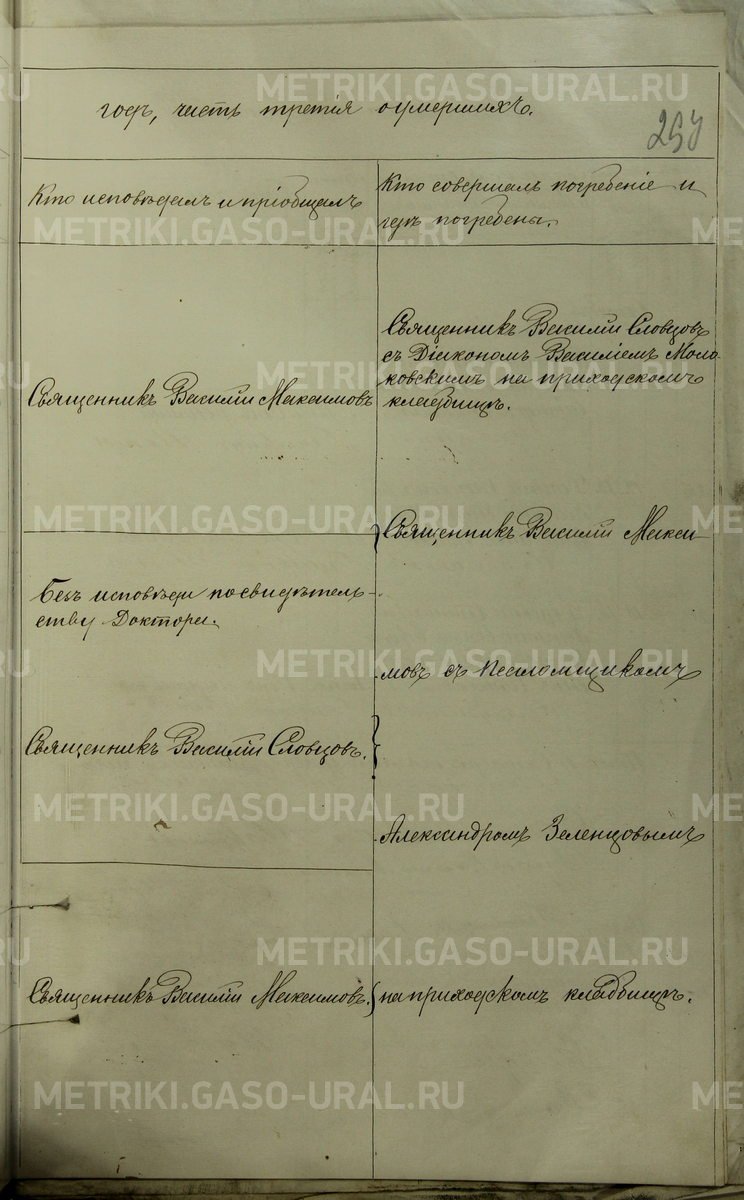 годъ, часть третiя о умершихъ.
Кто исповѣдалъ и прiобщалъ
Кто совершалъ погребенiе и
гдѣ погребены.
Священникъ Василiй Словцовъ
съ Дiакономъ Василiемъ Моло-
ковскимъ на приходскомъ
кладбищѣ.
Священникъ Василiй Максимовъ
Священникъ Василiй Макси-
Безъ исповѣди по свидѣтель-
ству Доктора.
мовъ съ Псаломщикомъ
Священникъ Василiй Словцовъ.
Александромъ Зеленцовымъ
Священникъ Василiй Максимовъ.
на приходскомъ кладбищѣ.
METRIKI.GASO-URAL.RU